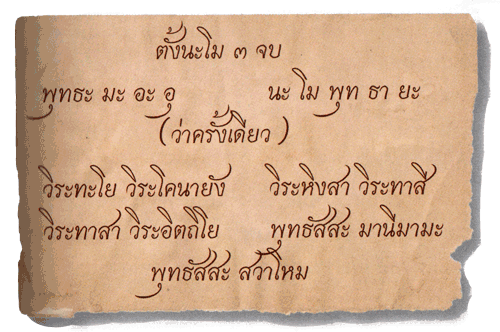 ตั้งนะโม ๓ จบ
พุทธะ มะ อะ อุ นะ โม พุท ธา ยะ
(ว่าครั้งเดียว)
วิระทะโย วิระโคนายัง วิระหิงสา วิระทาสี
วิระทาสา วิระอิตถิโย พุทธัสสะ มานีมามะ
พุทธัสสะ สวาโหม